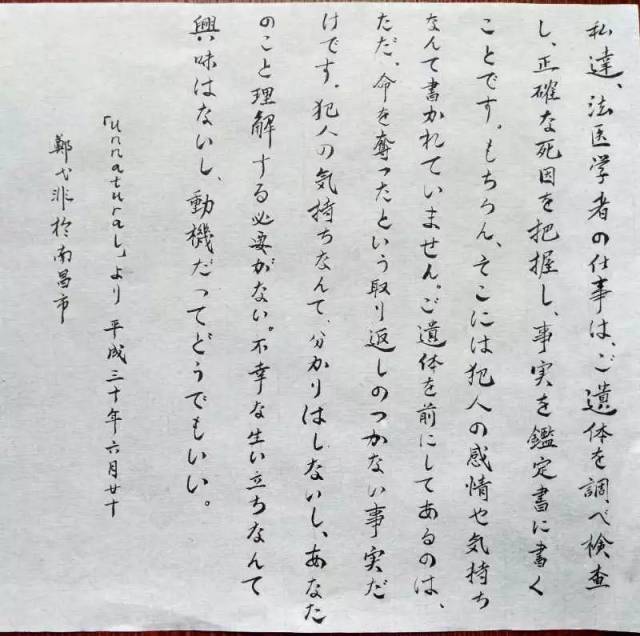 私達、法医学者の仕事は、ご遺体を調べ検査
し、正確な死因を把握し、事実を鑑定書に書く
ことです。もちろん、そこには犯人の感情や気持ち
なんて書かれていません。ご遺体を前にしてあるのは、
ただ、命を奪ったという取り返しのつかない事実だ
けです。犯人の気持ちなんて、分かりはしないし、あなた
のこと理解する必要がない。不幸な生い立ちなんて
興味はないし、動機だってどうでもいい。
「unnatural」より 平成三十年六月廿十
鄭弋非於南昌市